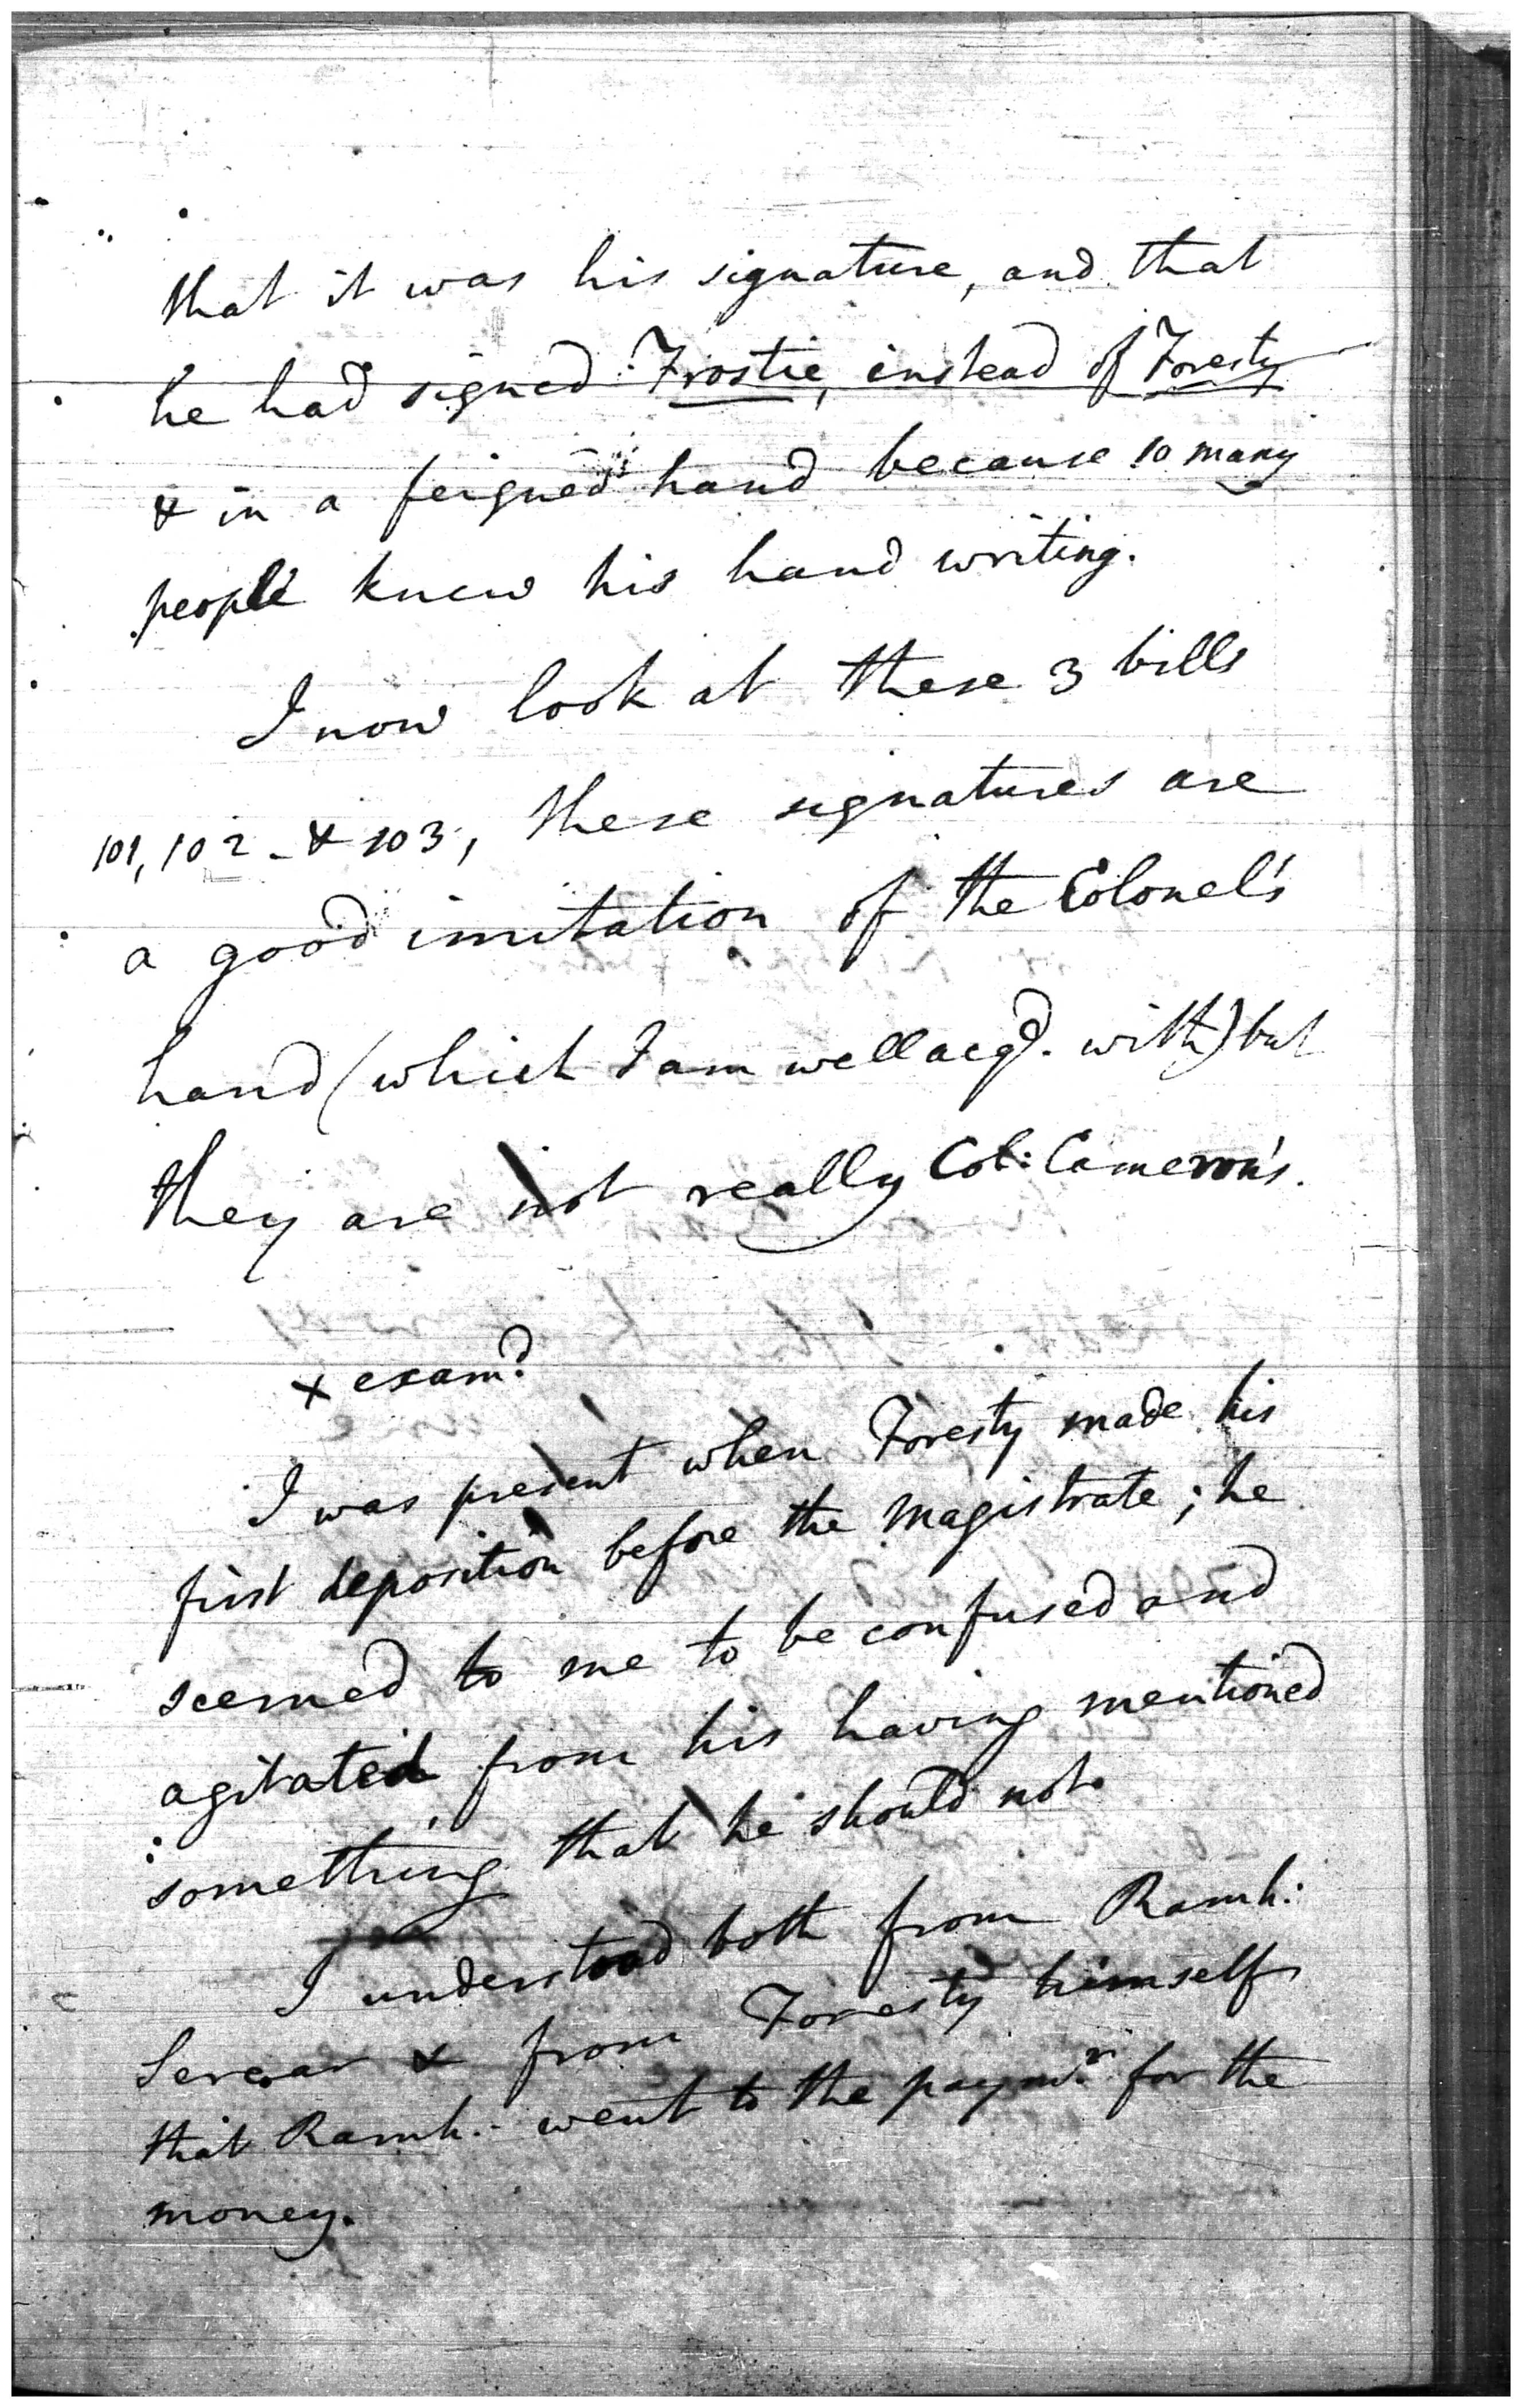 that it was his signature, and that
he had signed Frostie, instead of Foresty
& in a feigned hand because so many
people knew his hand writing.
I now look at these 3 bills
101, 102 - & 103, these signatures are
a good imitation of the Colonel's
hand (which I am well acqd. with) but
they are not really Col: Cameron's.
x examd.
I was present when Foresty made his
first deposition before the Magistrate; he
seemed to me to be confused and
agitated from his having mentioned
something that he should not.
I understood both from Ramh:
Sercar & from Foresty himself
that Ramh:- went to the paymr. for the
money.